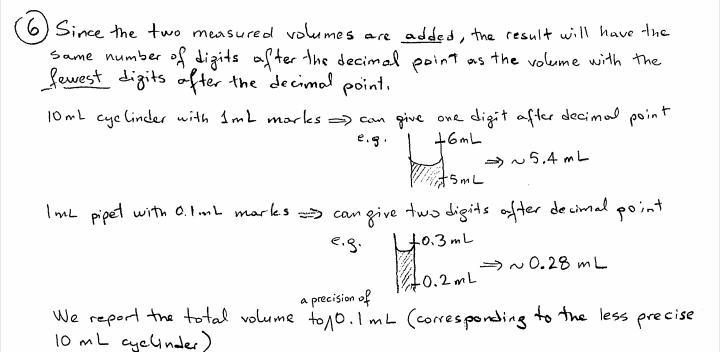 6 Since the two measured volumes are added, the result will have the
same number of digits after the decimal point as the volume with the
fewest digits after the decimal point.
10mL cyclinder with 1mL marks ⇒ can give one digit after decimal point
e.g.
6mL
5mL
⇒ ~ 5.4 mL
1mL pipet with 0.1mL marks ⇒ can give two digits after decimal point
e.g.
0.3mL
0.2mL
⇒ ~ 0.28 mL
a precision of
We report the total volume to 0.1mL (corresponding to the less precise
10 mL cyclinder)